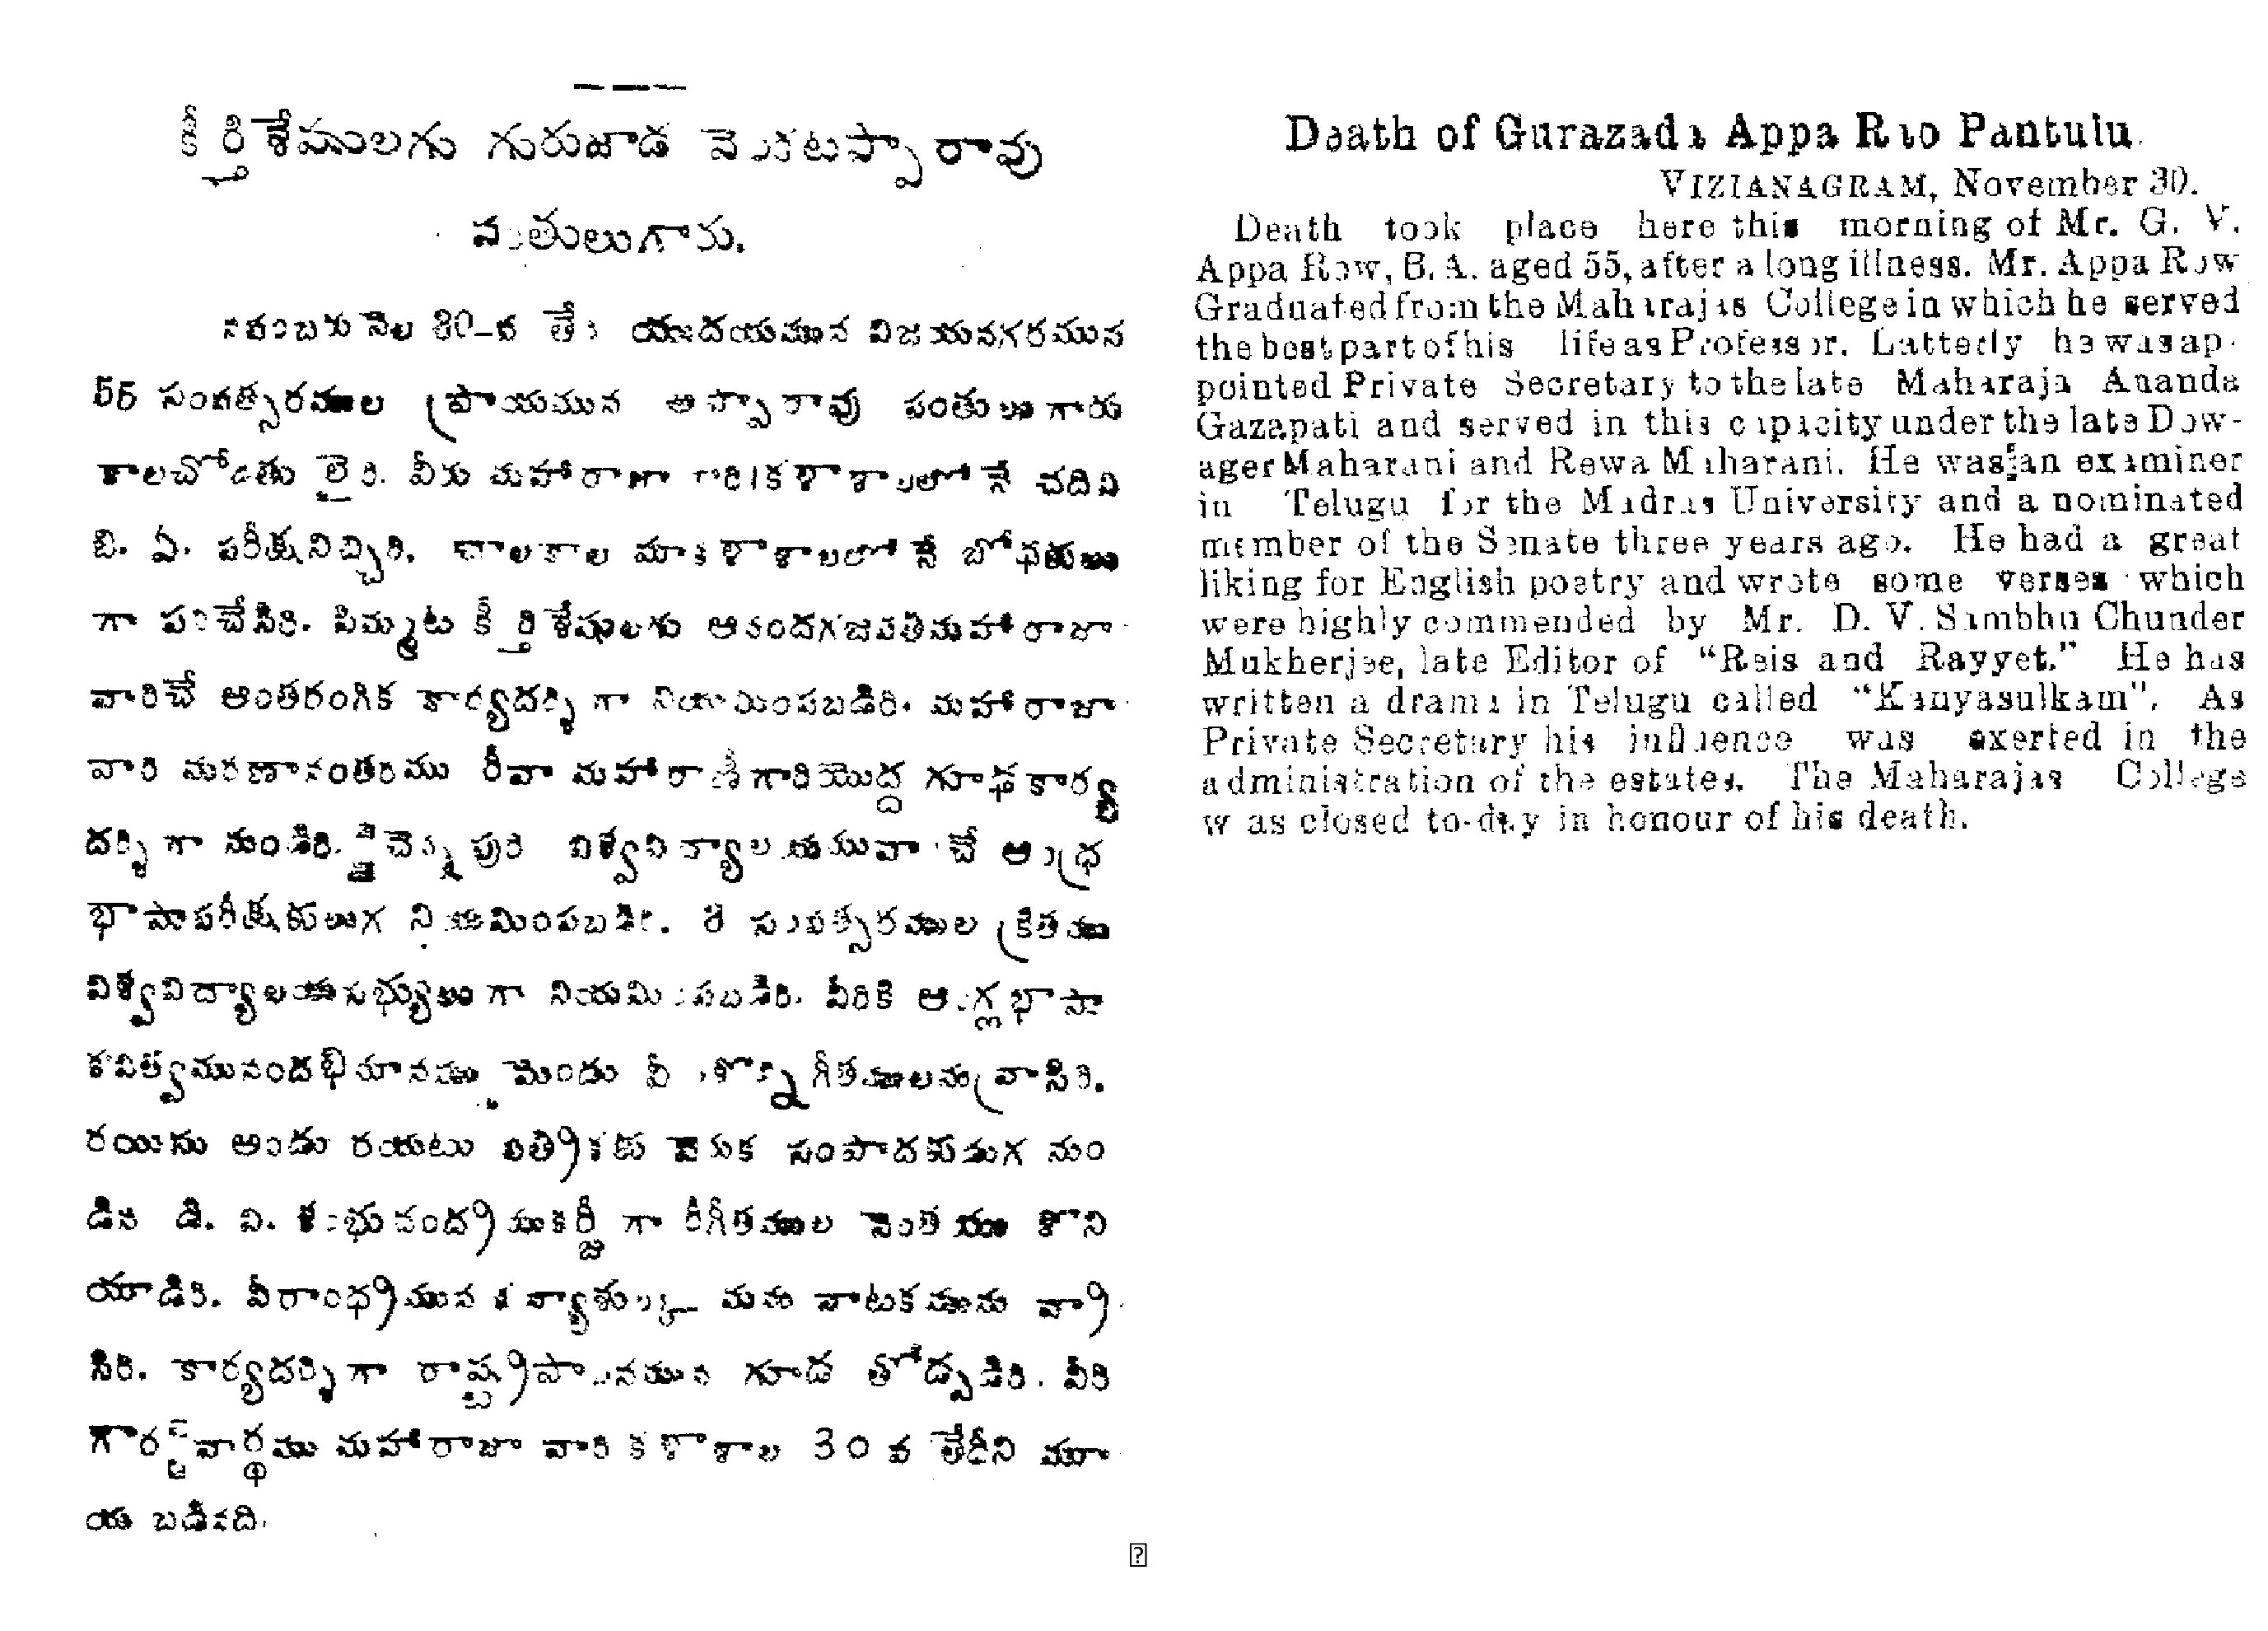 కీర్తిశేషులగు గురుజాడ వెంకటప్పారావు
పంతులుగారు.
నవంబరు నెల 30-వ తేది యుదయమున విజయనగరమున
55 సంవత్సరముల ప్రాయమున అప్పారావు పంతులుగారు
కాలచోదితు లైరి. వీరు మహారాజా వారికళాశాలలోనే చదివి
బి. ఏ. పరీక్షనిచ్చిరి. చాలకాల మాకళాశాలలోనే బోధకులు
గా పనిచేసిరి. పిమ్మట కీర్తిశేషులగు ఆనందగజపతిమహారాజా
వారిచే ఆంతరంగిక కార్యదర్శిగా నియమింపబడిరి. మహారాజా
వారి మరణానంతరము రీవా మహారాణీగారియొద్ద గూఢకార్య
దర్శిగా నుండిరి. చెన్నపురి విశ్వవిద్యాలయమువారిచే ఆంధ్ర
భాషాపరీక్షకులుగ నియమింపబడిరి. 3 సంవత్సరముల క్రితము
విశ్వవిద్యాలయసభ్యులుగా నియమింపబడిరి. వీరికి ఆంగ్లభాషా
కవిత్వమునందభిమానము మెండు వీరు కొన్ని గీతములనువ్రాసిరి.
రయిసు అండు రయటు పత్రికకు సంపాదకుముగ నుం
డిన డి. వి. శంభుచంద్రముకర్జీ గారీగీతముల నెంతయు కొని
యాడిరి. వీరాంధ్రమున కన్యాశుల్క మను నాటకమును వ్రా
సిరి. కార్యదర్శిగా రాష్ట్రపాలనమున గూడ తోడ్పడిరి. వీరి
గౌరవార్థము మహారాజా వారి కళాశాల 30 వ తేదీని మూ
యబడినది.
Death of Gurazada Appa Rao Pantulu.
VIZIANAGRAM, November 30.
Death took place here this morning of Mr. G. V.
Appa Row, B. A. aged 55, after a long illness. Mr. Appa Row
Graduated from the Maharajas College in which he served
the best part of his life as Professor. Latterly he was ap-
pointed Private Secretary to the late Maharaja Ananda
Gazapati and served in this capacity under the late Dow-
ager Maharani and Rewa Maharani. He was an examiner
in Telugu for the Madras University and a nominated
member of the Senate three years ago. He had a great
liking for English poetry and wrote some verses which
were highly commended by Mr. D. V. Sambhu Chunder
Mukherjee, late Editor of "Reis and Rayyet." He has
written a drama in Telugu called "Kanyasulkam". As
Private Secretary his influence was exerted in the
administration of the estates. The Maharajas College
w as closed to-day in honour of his death.